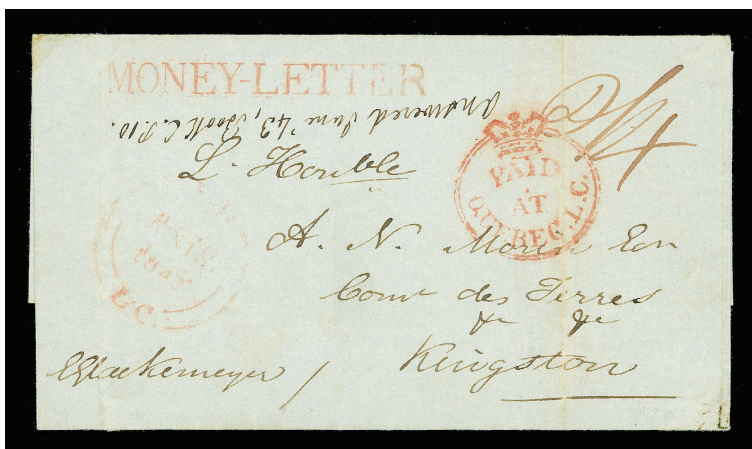 MONEY-LETTER
Answered June '43, Book C. P. 10.
L'Honble
PAID
AT
QUEBEC.L.C.
1843
L.C.
A. N. Morin Esqr
Comr des Terres
&c &c
Kingston
EGlackemeyer /